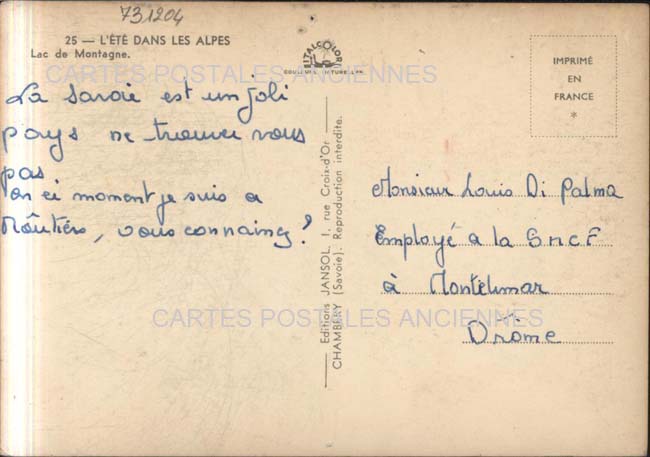 731204
25 — L'ÉTÉ DANS LES ALPES
Lac de Montagne.
ITALCOLOR
CARTES POSTALES ANCIENNES
La Savoie est un joli
pays ne trouvez vous
pas
en ci moment je suis a
Moûtiers, vous connainez?
Editions JANSOL, 1, rue Croix-d'Or
CHAMBÉRY (Savoie). Reproduction interdite.
IMPRIMÉ
EN
FRANCE
*
Monsieur Louis Di Palma
Employé a la SNCF
à Montélimar
Drôme
CARTES POSTALES ANCIENNES